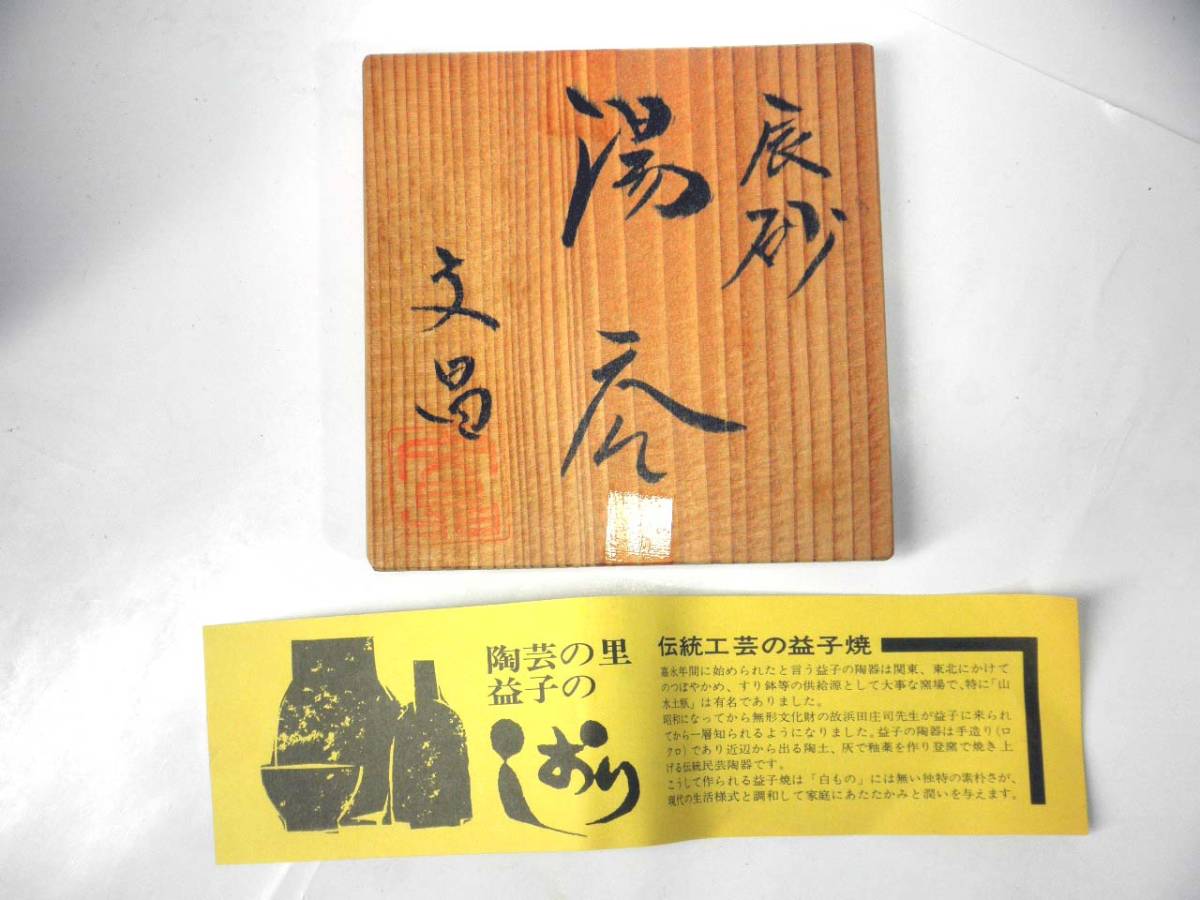 辰砂
湯呑
文昌
陶芸の里
益子の
しおり
伝統工芸の益子焼
嘉永年間に始められたと言う益子の陶器は関東、東北にかけて
のつぼやかめ、すり鉢等の供給源として大事な窯場で、特に「山
水土瓶」は有名でありました。
昭和になってから無形文化財の故浜田庄司先生が益子に来られ
てから一層知られるようになりました。益子の陶器は手造り(ロ
クロ)であり近辺から出る陶土、灰で釉薬を作り登窯で焼き上
げる伝統民芸陶器です。
こうして作られる益子焼は「白もの」には無い独特の素朴さが、
現代の生活様式と調和して家庭にあたたかみと潤いを与えます。